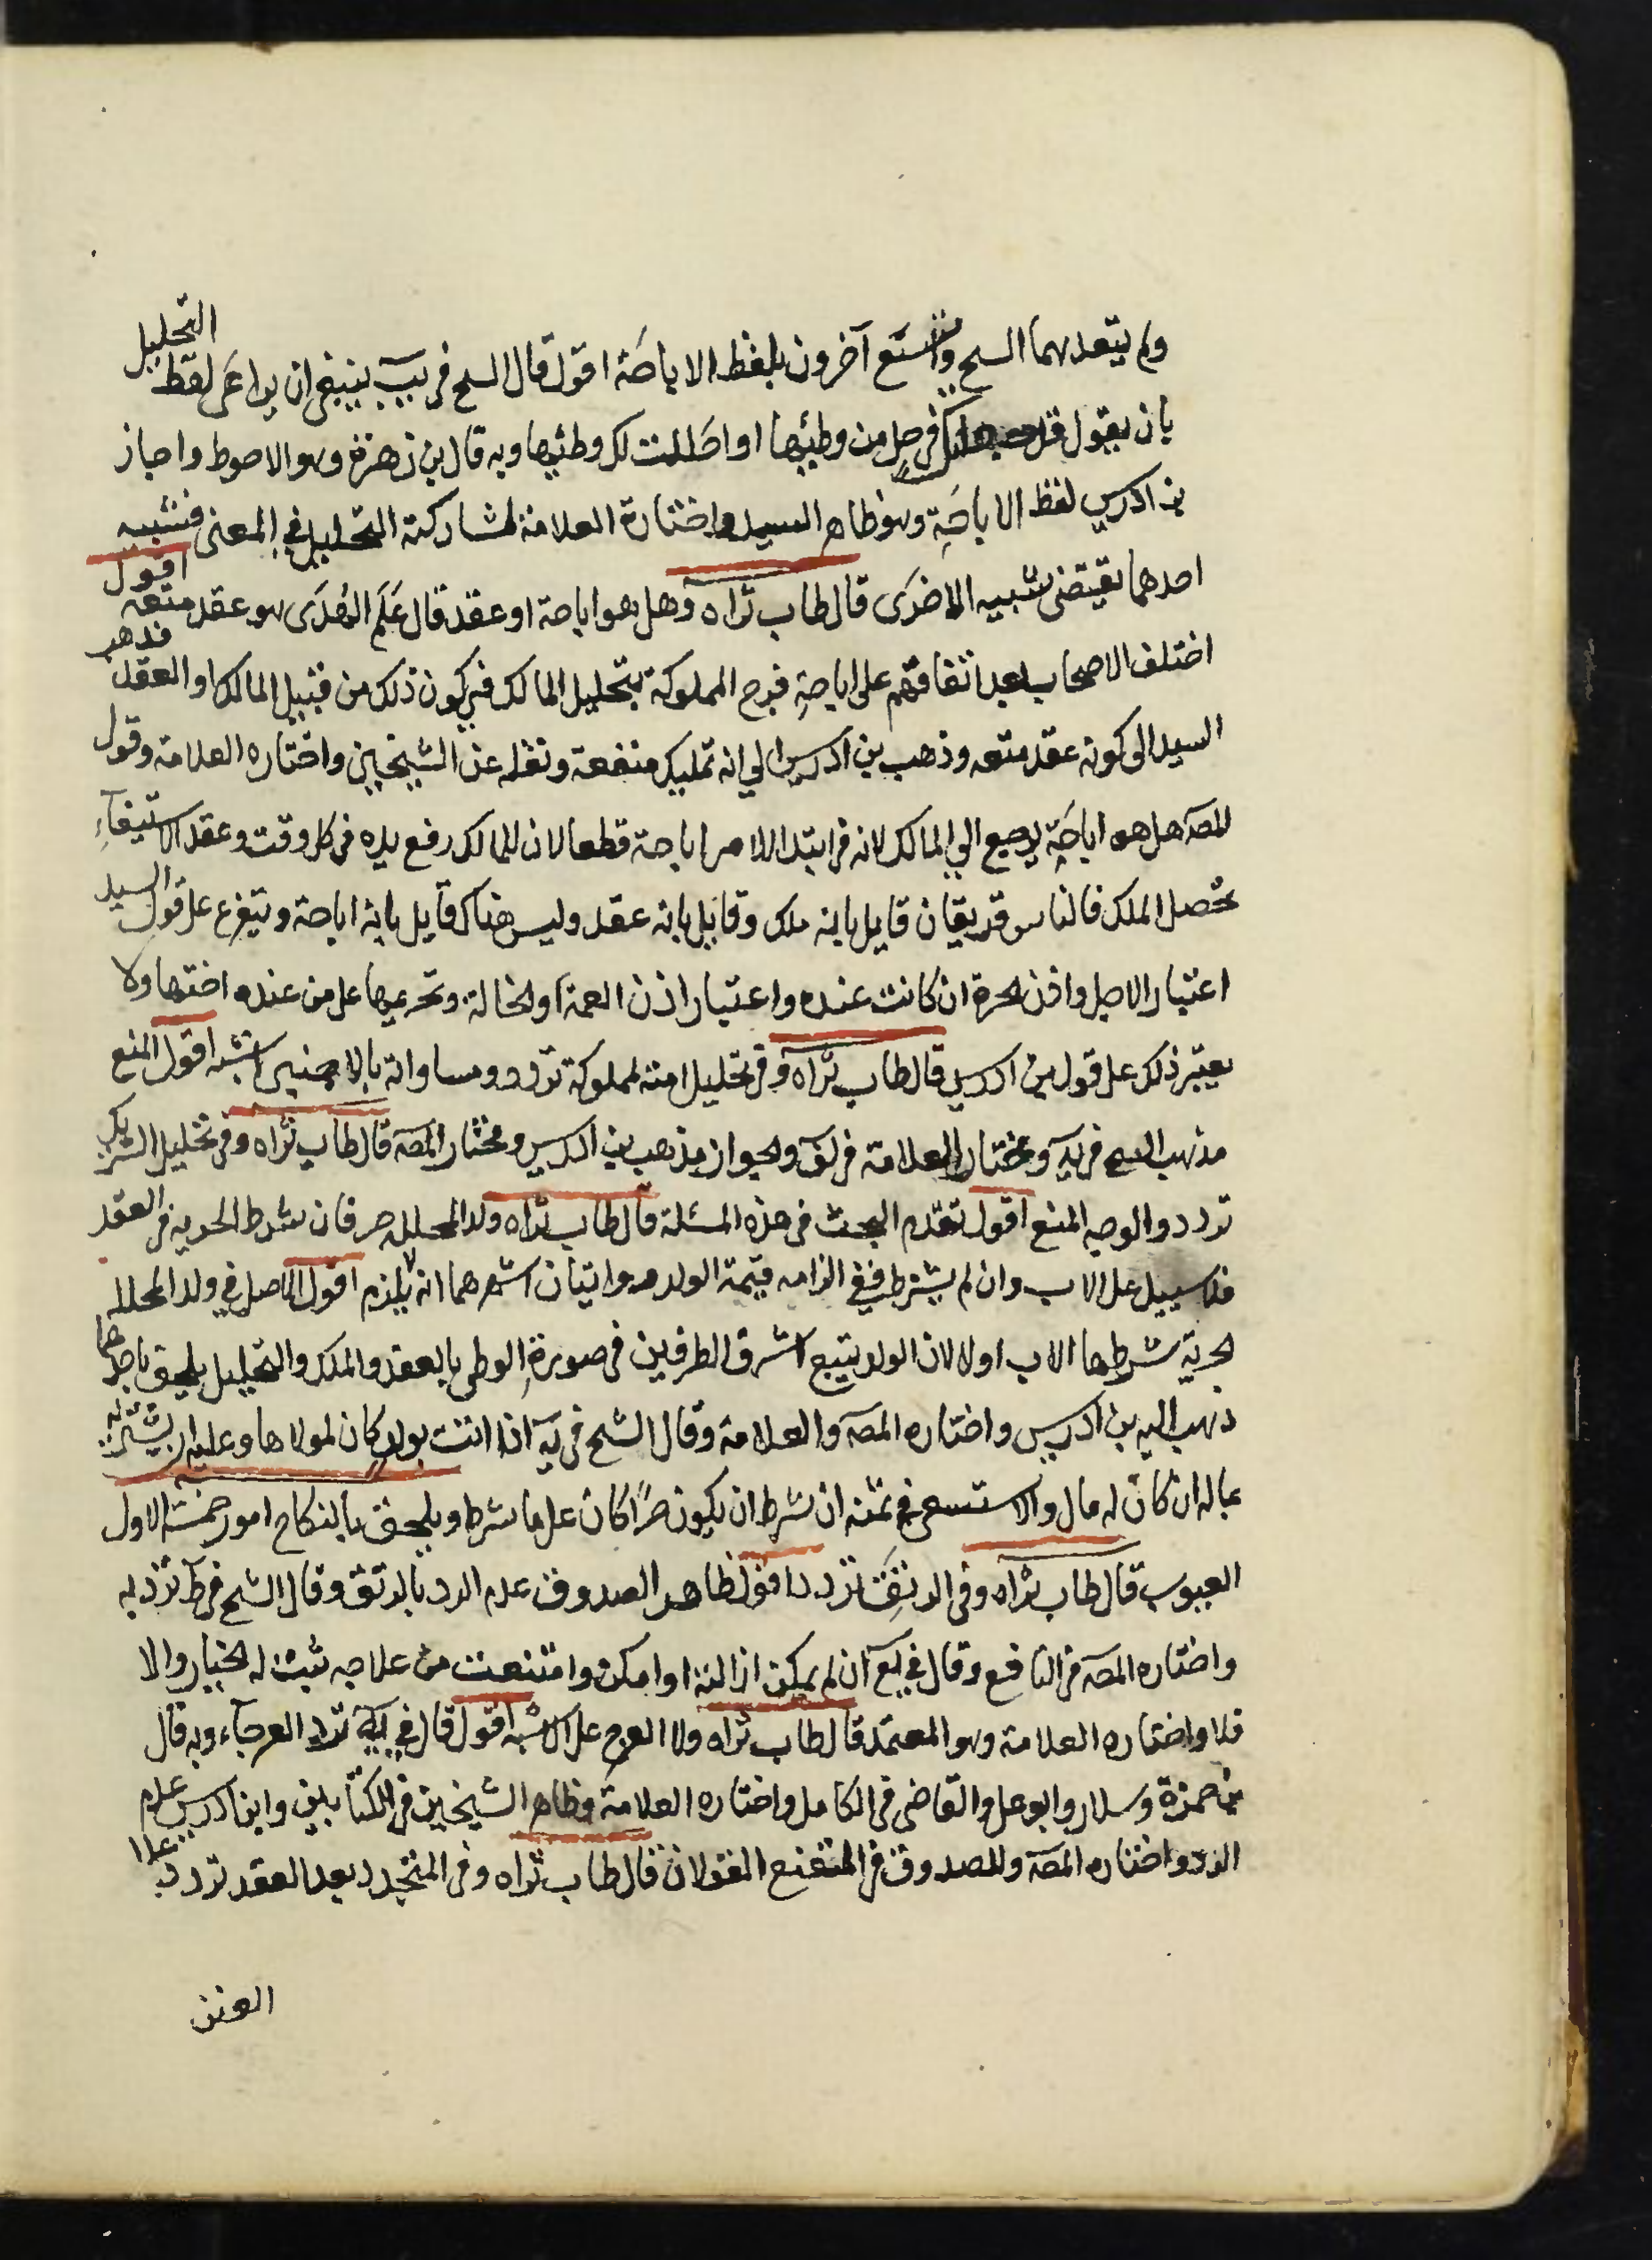 ولم يتعدهما الشيخ واتسع آخرون بلفظ الاباحة اقول قال الشيخ في يب ينبغي ان يراعى لفظ التحليل
بان يقول قد جعلتك في حل من وطيها او احللت لك وطئها وبه قال بن زهرة وهو الاحوط واجاز
بن ادريس لفظ الاباحة وهو ظاهر السيد واختاره العلامة لمشاركته التحليل في المعنى فتشبيه
احدهما يقتضي تشبيه الاخرى قال طاب ثراه وهل هو اباحة او عقد قال علم الهدى هو عقد متعه اقول
اختلف الاصحاب بعد اتفاقهم على اباحة فرج المملوكة بتحليل المالك في كون ذلك من قبيل المالك او العقد فذهب
السيد الى كونه عقد متعه وذهب بن ادريس الى انه تمليك منفعة ونقله عن الشيخين واختاره العلامة وقول
المصَ هل هو اباحة يرجع الى المالك لانه في ابتداء الامر اباحة قطعا لان للمالك رفع يده في كل وقت وعقد الاستيفآء
تحصل الملك فالناس فريقان قايل بانه ملك وقايل بانه عقد وليس هناك قايل بانه اباحة ويتفرع على قول السيد
اعتبار الاصل واذن الحرة ان كانت عنده واعتبار اذن العمة او الخالة وتحريمها على من عنده اختها ولا
يعتبر ذلك على قول بن ادريس قال طاب ثراه وفي تحليل امته لمملوكة تردد ومساواته بالاجنبي اشبه اقول المنع
مذهب الشيخ في يه ومختار العلامة في لف والجواز مذهب بن ادريس ومختار المصَ قال طاب ثراه وفي تحليل الشريك
تردد والوجه المنع اقول تقدم البحث في هذه المسئلة قال طاب ثراه ولد المحلله حر فان شرط الحرية في العقد
فلا سبيل على الاب وان لم يشترط ففي الزامه قيمة الولد روايتان اشهرهما انه لا يلزم اقول الاصل في ولد المحلله
الحرية شرطها الاب اولا لان الولد يتبع اشرف الطرفين في صورة الوطي بالعقد والملك والتحليل يلحق باحدهما
ذهب اليه بن ادريس واختاره المصَ والعلامة وقال الشيخ في يه اذا اتت بولد كان لمولاها وعليه ان يشتريه
بماله ان كان له مال والا استسعى في ثمنه ان شرط ان يكون حرًا كان على ما شرط ويلحق بالنكاح امور خمسة الاول
العيوب قال طاب ثراه وفي الرتق تردد اقول ظاهر الصدوق عدم الرد بالرتق وقال الشيخ في ط ترد به
واختاره المصَ في النافع وقال في يع ان لم يمكن ازالته او امكن وامتنعت من علاجه ثبت له الخيار والا
فلا واختاره العلامة وهو المعتمد قال طاب ثراه ولا العرج على الاشبه اقول قال في يه ترد العرجآء وبه قال
بن حمزة وسلار وابو علي والقاضي في الكامل واختاره العلامة وظاهر الشيخين في الكتابين وابن ادريس عدم
الرد واختاره المصَ وللصدوق في المقنع القولان قال طاب ثراه وفي المتجدد بعد العقد تردد عدا
العنن